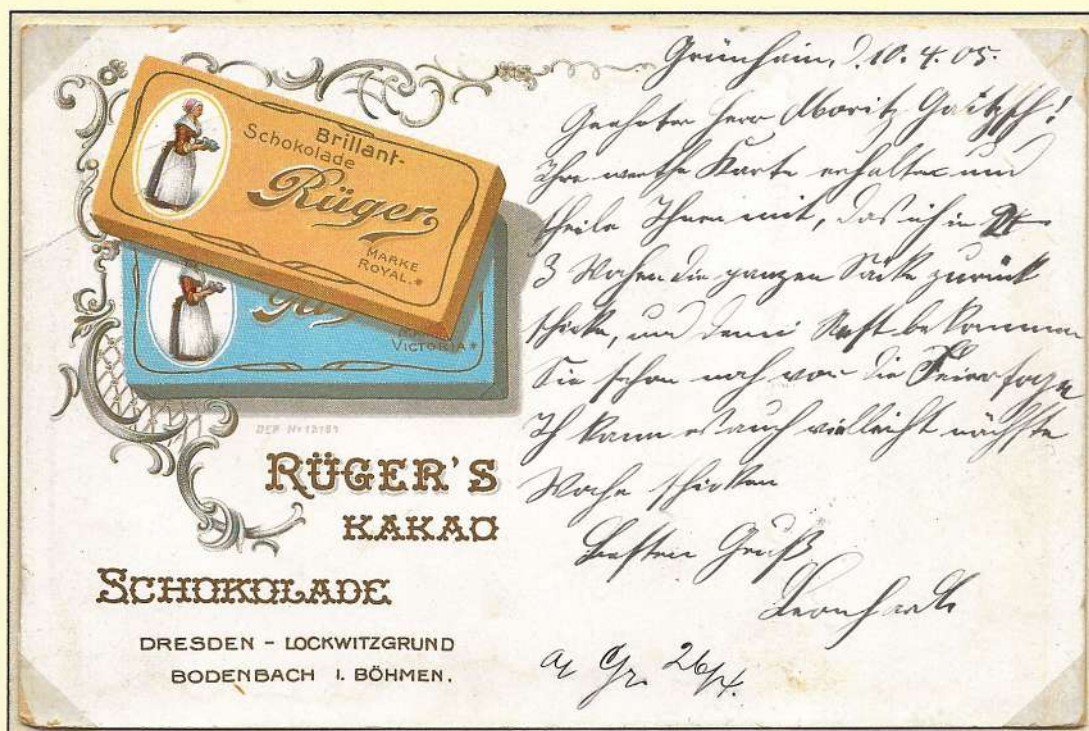 Brillant-
Schokolade
Rüger.
MARKE
ROYAL.*
VICTORIA*
DEP. No 13161
RÜGER'S
KAKAO
SCHOKOLADE
DRESDEN - LOCKWITZGRUND
BODENBACH I. BÖHMEN.
Grünhain, d. 10. 4. 05.
Geehrter Herr Moritz
Ihre werthe Karte erhalten und
theile Ihnen mit, das ich in
3 Wochen die ganzen Säcke zurück
schicke, und Rest bekommen
Sie schon noch vor die Feiertage
Ich kann es auch vielleicht nächste
Woche schicken
Besten Gruß
Leonhardt
26/4.